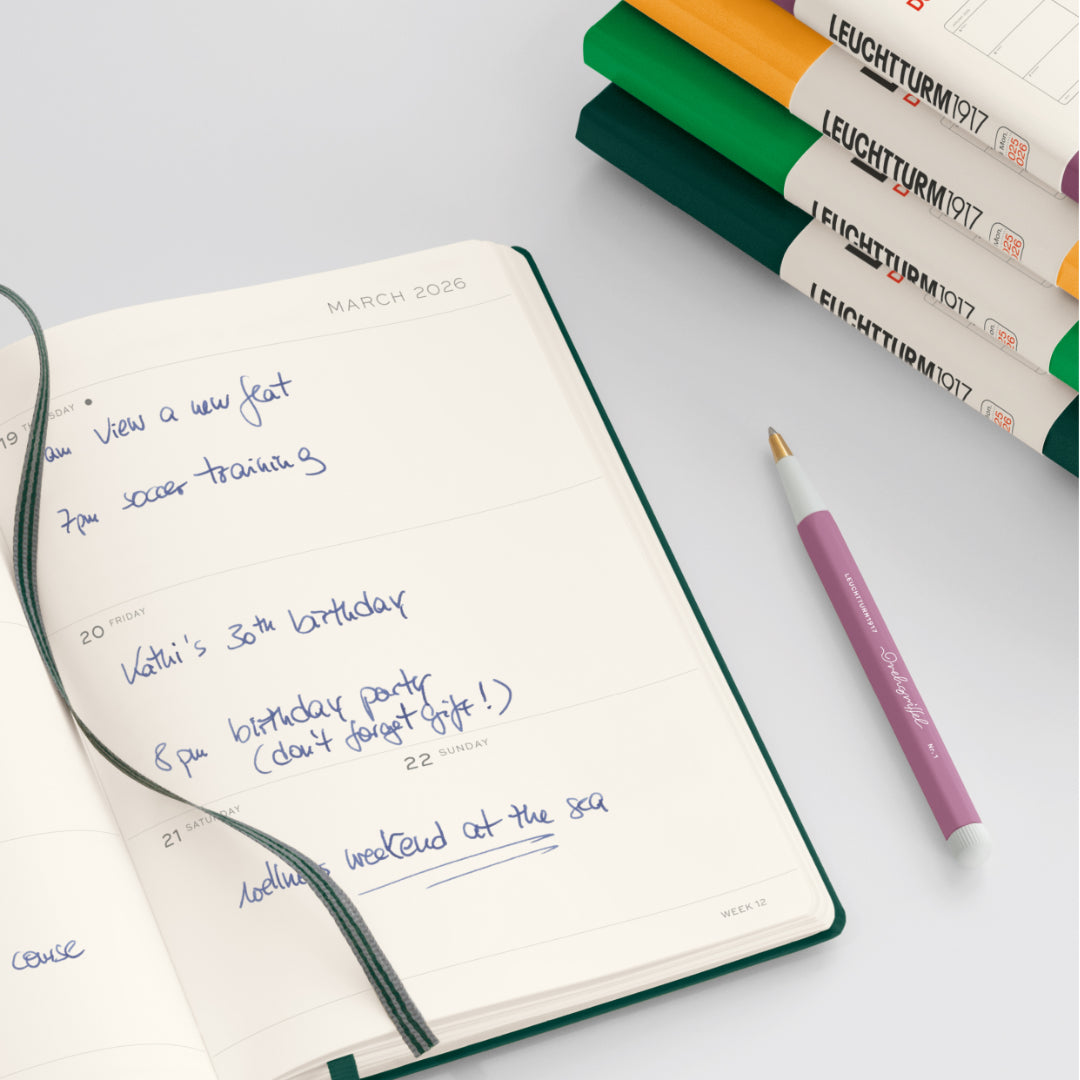 MARCH 2026
19 THURSDAY
am view a new flat
7pm soccer training
20 FRIDAY
Kathi's 30th birthday
8pm birthday party
(don't forget gift!)
21 SATURDAY
22 SUNDAY
wellness weekend at the sea
WEEK 12
course
LEUCHTTURM1917
2025
2026
LEUCHTTURM1917
Mon.
2025
2026
LEUCHTTURM1917
Mon.
2025
2026
LEUCHTTURM1917
LEUCHTTURM1917
Drehgriffel
Nr. 1